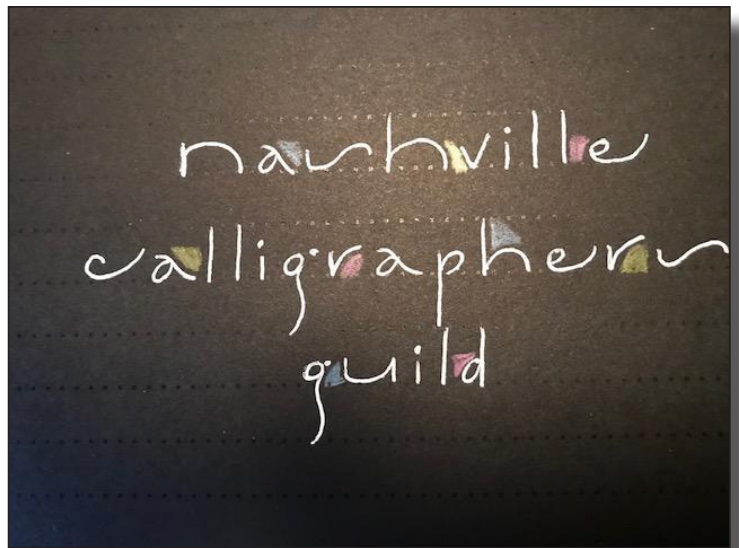 nashville
calligraphers
guild